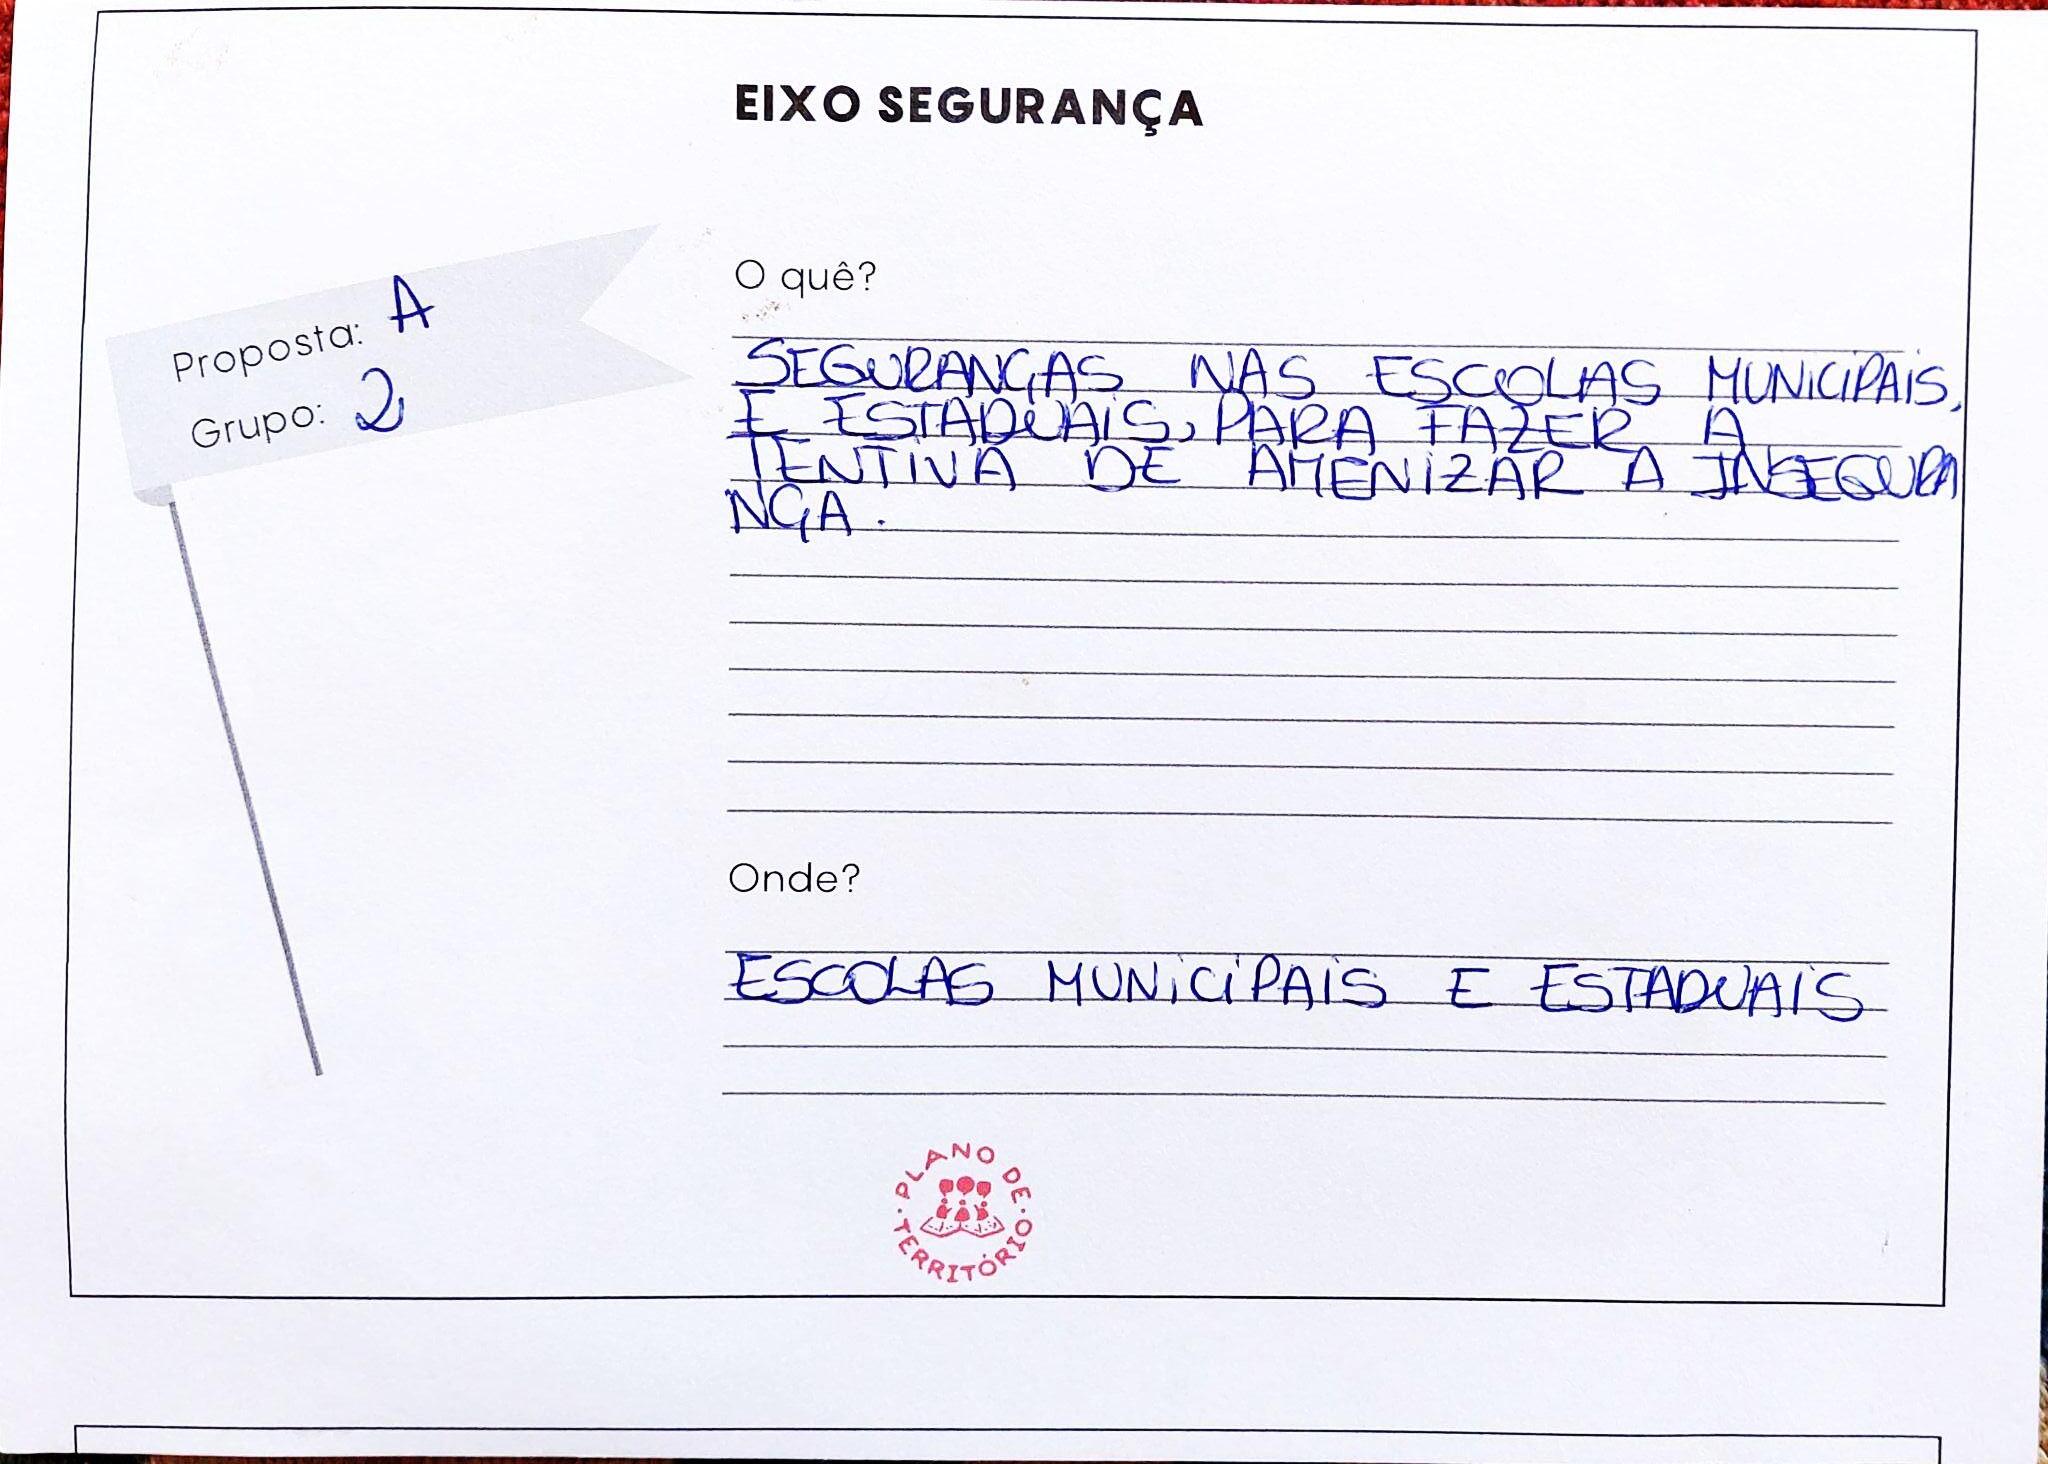 EIXO SEGURANÇA
Proposta: A
Grupo: 2
O quê?
SEGURANÇAS NAS ESCOLAS MUNICIPAIS,
E ESTADUAIS, PARA FAZER A
TENTIVA DE AMENIZAR A INSEGURA
NÇA.
Onde?
ESCOLAS MUNICIPAIS E ESTADUAIS
PLANO DE
TERRITÓRIO